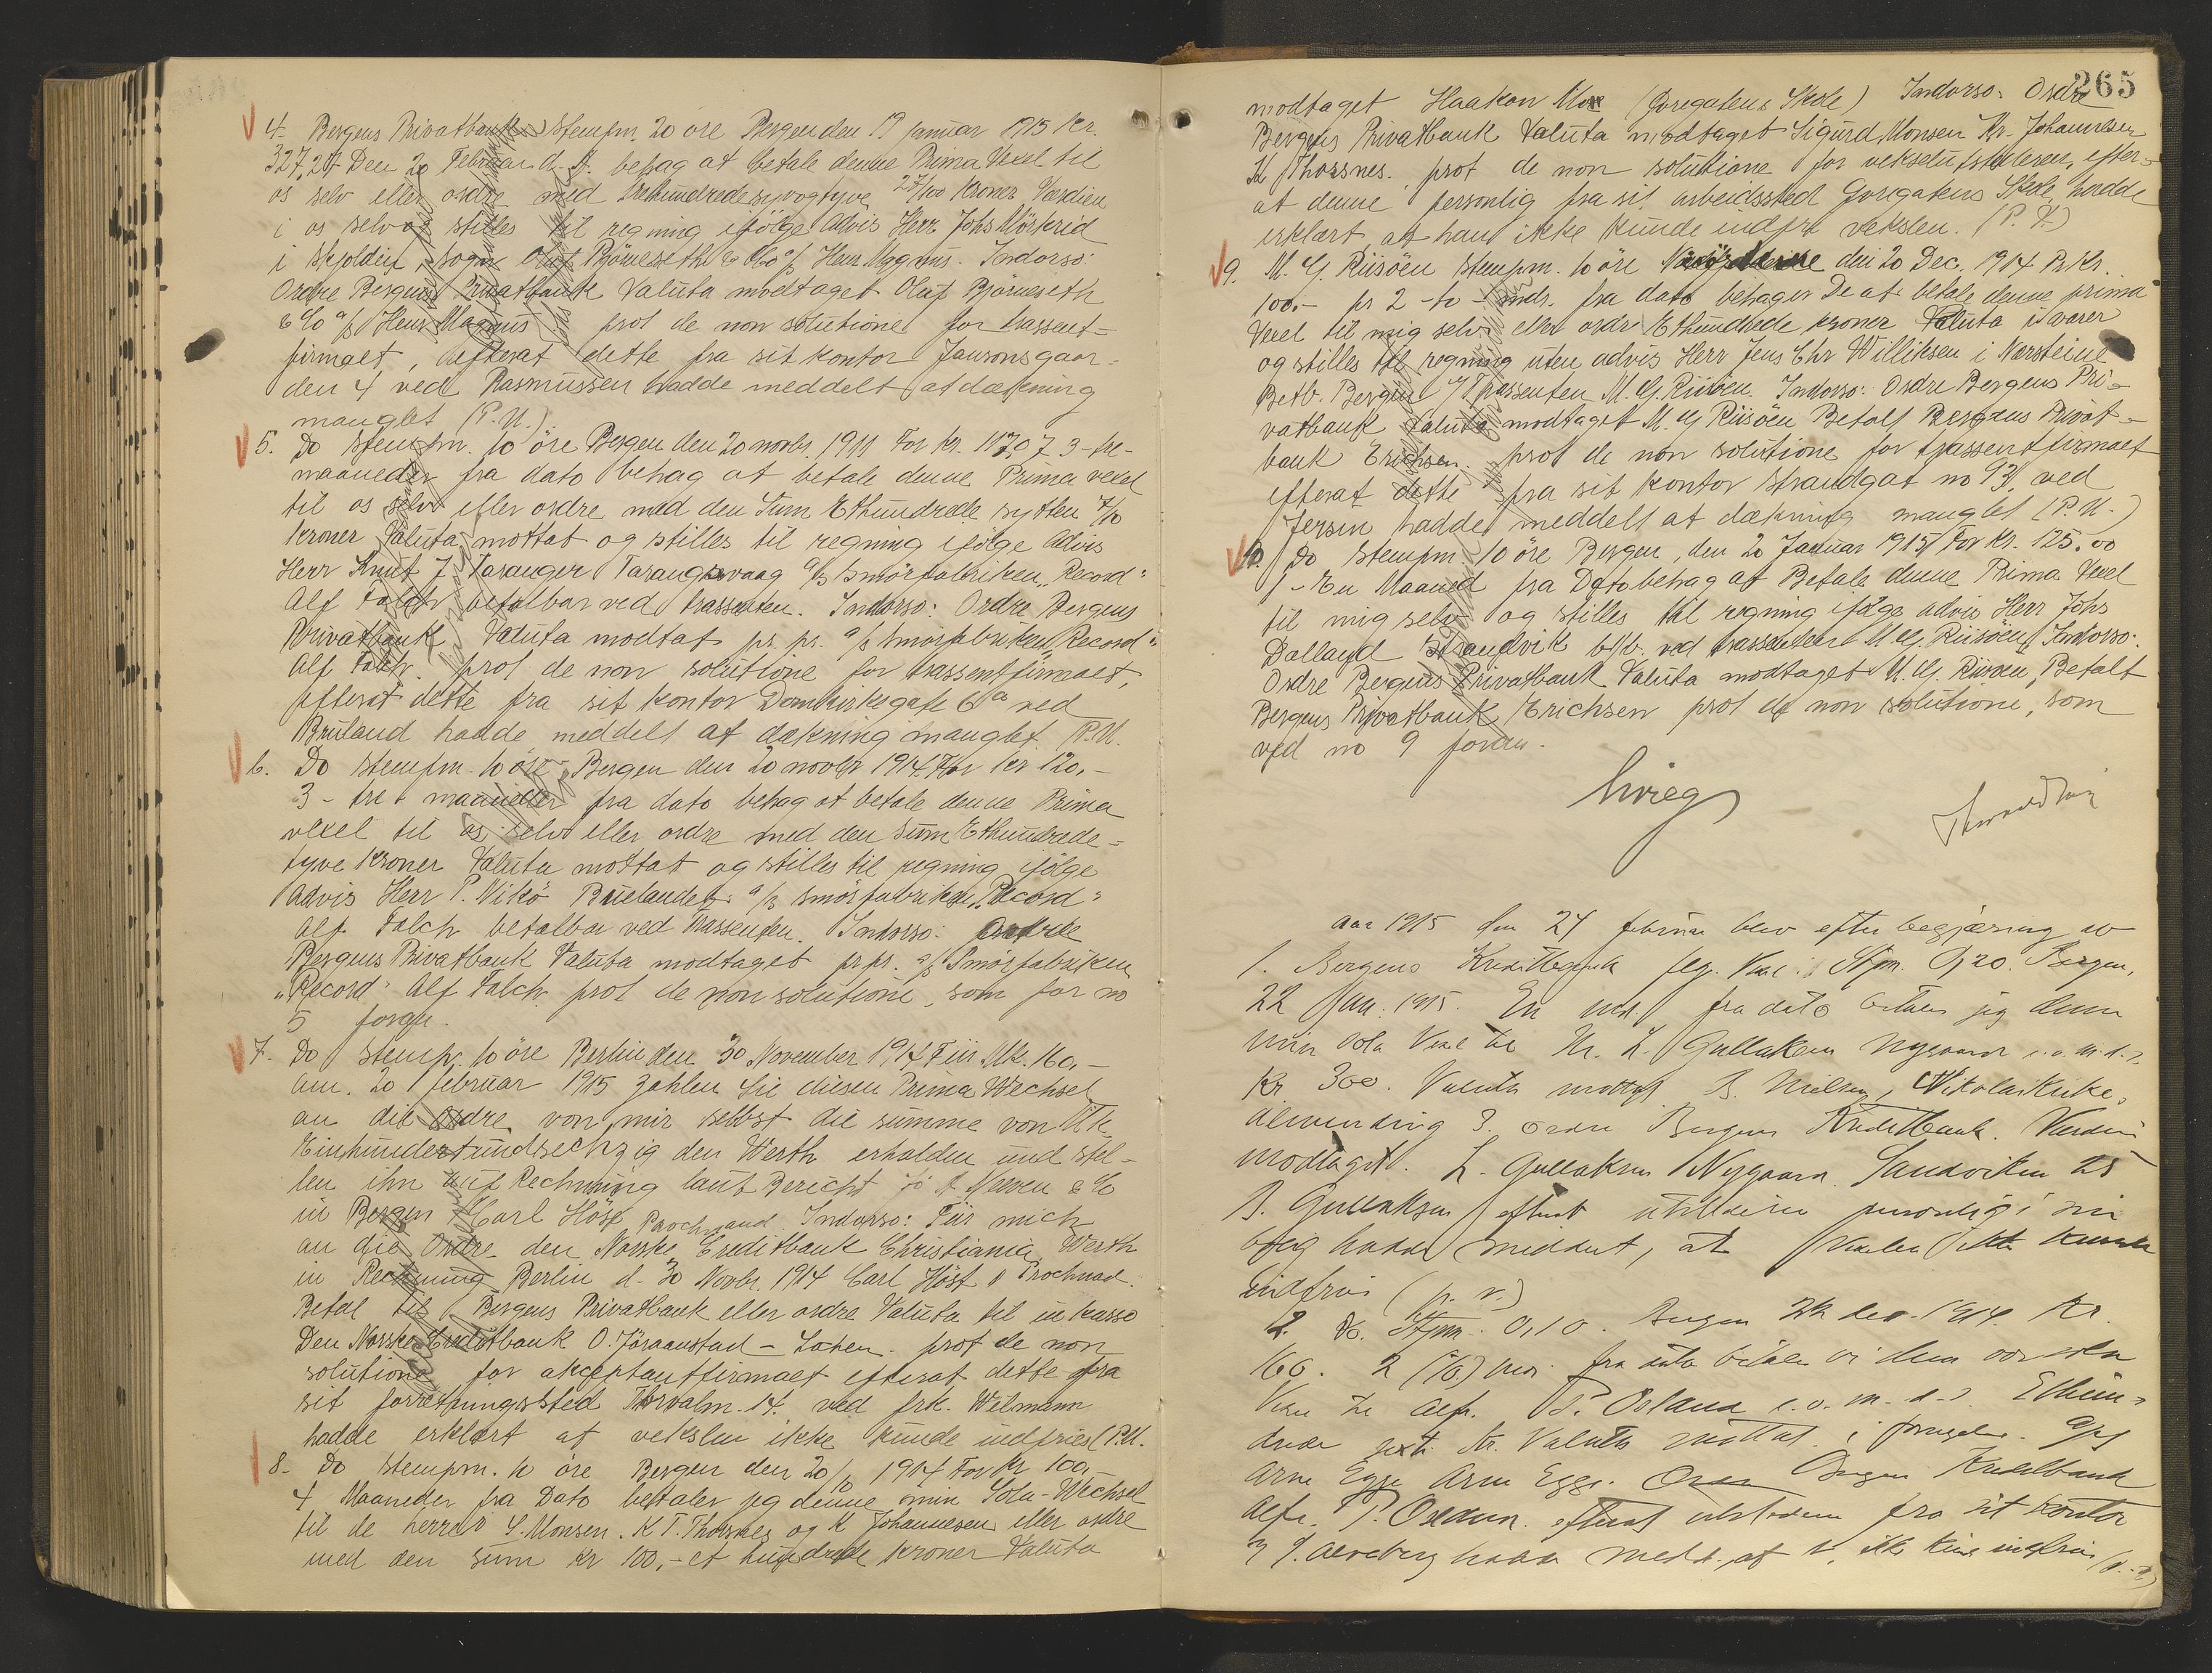 4. Bergens Privatbank Stempm. 20 öre Bergen den 19 januar 1915 Kr.
327,27 Den 20 Februar d. A. behag at betale denne Prima Vexel til
os selv eller ordre med Trehundredesyvogtyve 27/100 Kroner Værdien
i os selv og stilles til regning ifölge Advis Herr Johs Mörkrid
i Skjolden, Sogn Oluf Björneseth & Co a/s Henr. Magnus. Indorso:
Ordre Bergens Privatbank Valuta modtaget Oluf Björneseth
& Co a/s Henr. Magnus prot de non solutione for trassent-
firmaet, efterat dette fra sit kontor Jansonsgaar-
den 4 ved Rasmussen hadde meddelt at dækning
manglet (P.U.)
5. Do Stempm. 10 öre Bergen den 20 novbr. 1914 For Kr. 117,07 3-tre-
maaneder fra dato behag at betale denne Prima vexel
til os selv eller ordre med den Sum Ethundrede sytten 7/100
Kroner Valuta mottat og stilles til regning ifölge Advis
Herr Knut J. Taranger Tarangervaag a/s Smörfabriken „Record"
Alf Falch betalbar ved trassenten. Indorso: Ordre Bergens
Privatbank Valuta modtat pr. pr. a/s Smörfabriken „Record"
Alf Falch. prot de non solutione for trassentfirmaet,
efterat dette fra sit kontor Domkirkegate 6a ved
Bruland hadde meddelt at dækning manglet (P.U.
6. Do Stempm. 10 öre Bergen den 20 novbr 1914 For Kr 120.-
3 - tre - maaneder fra dato behag at betale denne Prima
vexel til os selv eller ordre med den Sum Ethundrede-
tyve Kroner Valuta mottat og stilles til regning ifölge
Advis Herr P. Nikö Buelandet a/s Smörfabriken „Record"
Alf Falch betalbar ved trassenten. Indorso: Ordre
Bergens Privatbank Valuta modtaget pr pr. a/s Smörfabriken
„Record" Alf Falch prot de non solutione, som for no
5 foran.
7. Do Stempm. 10 öre Berlin den 30 November 1914 Für Mk. 160.-
am. 20 februar 1915 Zahlen Sie diesen Prima Wechsel
an die Ordre von mir selbst die summe von Mk
Einhundertundsechzig den Werth erhalden und stel-
len ihn auf Rechnung laut Bericht & Co
in Bergen Carl Höst Prochnand. Indorso: Für mich
an die Ordre den Norske Creditbank Christiania Werth
in Rechnung Berlin d. 30 Novbr. 1914 Carl Höst Prochnad.
Betal til Bergens Privatbank eller ordre Valuta til inkasso
Den Norske Creditbank O. Jöraanstad - prot de non
solutione for akceptantfirmaet efterat dette fra
sit forretningssted Thorvalm. 14. ved frk. Wilmann
hadde erklært at vekslen ikke kunde indfries (P.U.
8. Do stempm. 10 öre Bergen den 20/10 1914 For Kr 100.-
4 Maaneder fra Dato betaler jeg denne min Sola-Wechsel
til de herrer S. Monsen. K. T. Thorsnes og K Johannesen eller ordre
med den sum kr 100,- et hundrede kroner Valuta
265
modtaget Haakon (Goregatens Skole) Indorso: Ordre
Bergens Privatbank Valuta modtaget Sigurd Monsen Kr. Johannesen
K Thorsnes, prot de non solutione for vekselutstederen, efter-
at denne personlig fra sit arbeidssted Goregatens Skole hadde
erklært at han ikke kunde indfri vekslen. (P.U.)
9. M. G. Riisöen Stempm. 10 öre den 20 Dec. 1914 Kr.
100.- pr 2 -to- mdr. fra dato behager De at betale denne prima
Vexel til mig selv eller ordre Ethundrede kroner Valuta i varer
og stilles til regning uten advis Herr Jens Chr Williksen i Nærsteine
Betb. Bergen Trassenten M. G. Riisöen. Indorso: Ordre Bergens Pri-
vatbank Valuta modtaget M. G Riisöen Betalt Bergens Privat-
bank Erichsen. prot de non solutione for trassentfirmaet
efterat dette fra sit kontor Strandgat no 93, ved
Jersin hadde meddelt at dækning manglet (P.U.)
10. Do Stempm. 10 öre Bergen, den 20 Januar 1915 For Kr. 125.00
1 - En Maaned fra Dato behag at Betale denne Prima Vexel
til mig selv og stilles til regning ifölge advis Herr Johs
Dalland Strandvik betb. ved trassenten M. G. Riisöen Indorso:
Ordre Bergens Privatbank Valuta modtaget M. G. Riisöen, Betalt
Bergens Privatbank Erichsen prot de non solutione, som
ved no 9 foran.
aar 1915 den 24 februar blev efter begjæring av
1. Bergens Kreditbank flg. Vexel: Stpm. 0,20. Bergen,
22 Jan. 1915. En md fra dato betaler jeg denne
min Sola Vexel til Hr. L. Gullaksen Nygaard e.o. m. d. s.
Kr. 300. Valuta mottat B. Nielsen, Nikolaikirke-
almending 3. ordre Bergens Kreditbank. Værdien
modtaget. L. Gullaksen Nygaard Sandviken 25
B. Gullaksen efterat utstederen personlig i sin
hadde meddelt, at Vexlen ikke kunde
indfries (p. v.)
2. Do. Stpm. 0,10. Bergen 22 dec. 1914 Kr.
160. 2 (to) mdr. fra dato betaler vi denne vor sola
Vexel til Alfr. P. Osland e.o. m. d. s. Ethun-
drede sexti Kr. Valuta mottat i a/s
Arne Egge Arne Egge. Ordre Bergens Kreditbank
Alfr. P. Osland. efterat utstederen fra sit kontor
hadde medd. at v. ikke kunde indfries (p. v.)